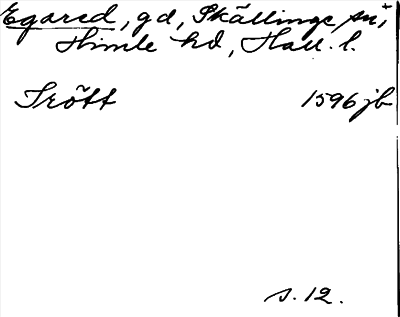 Egared, gd, Skällinge sn,
Himle hd, Hall. l.
Trött 1596 jb
s. 12.